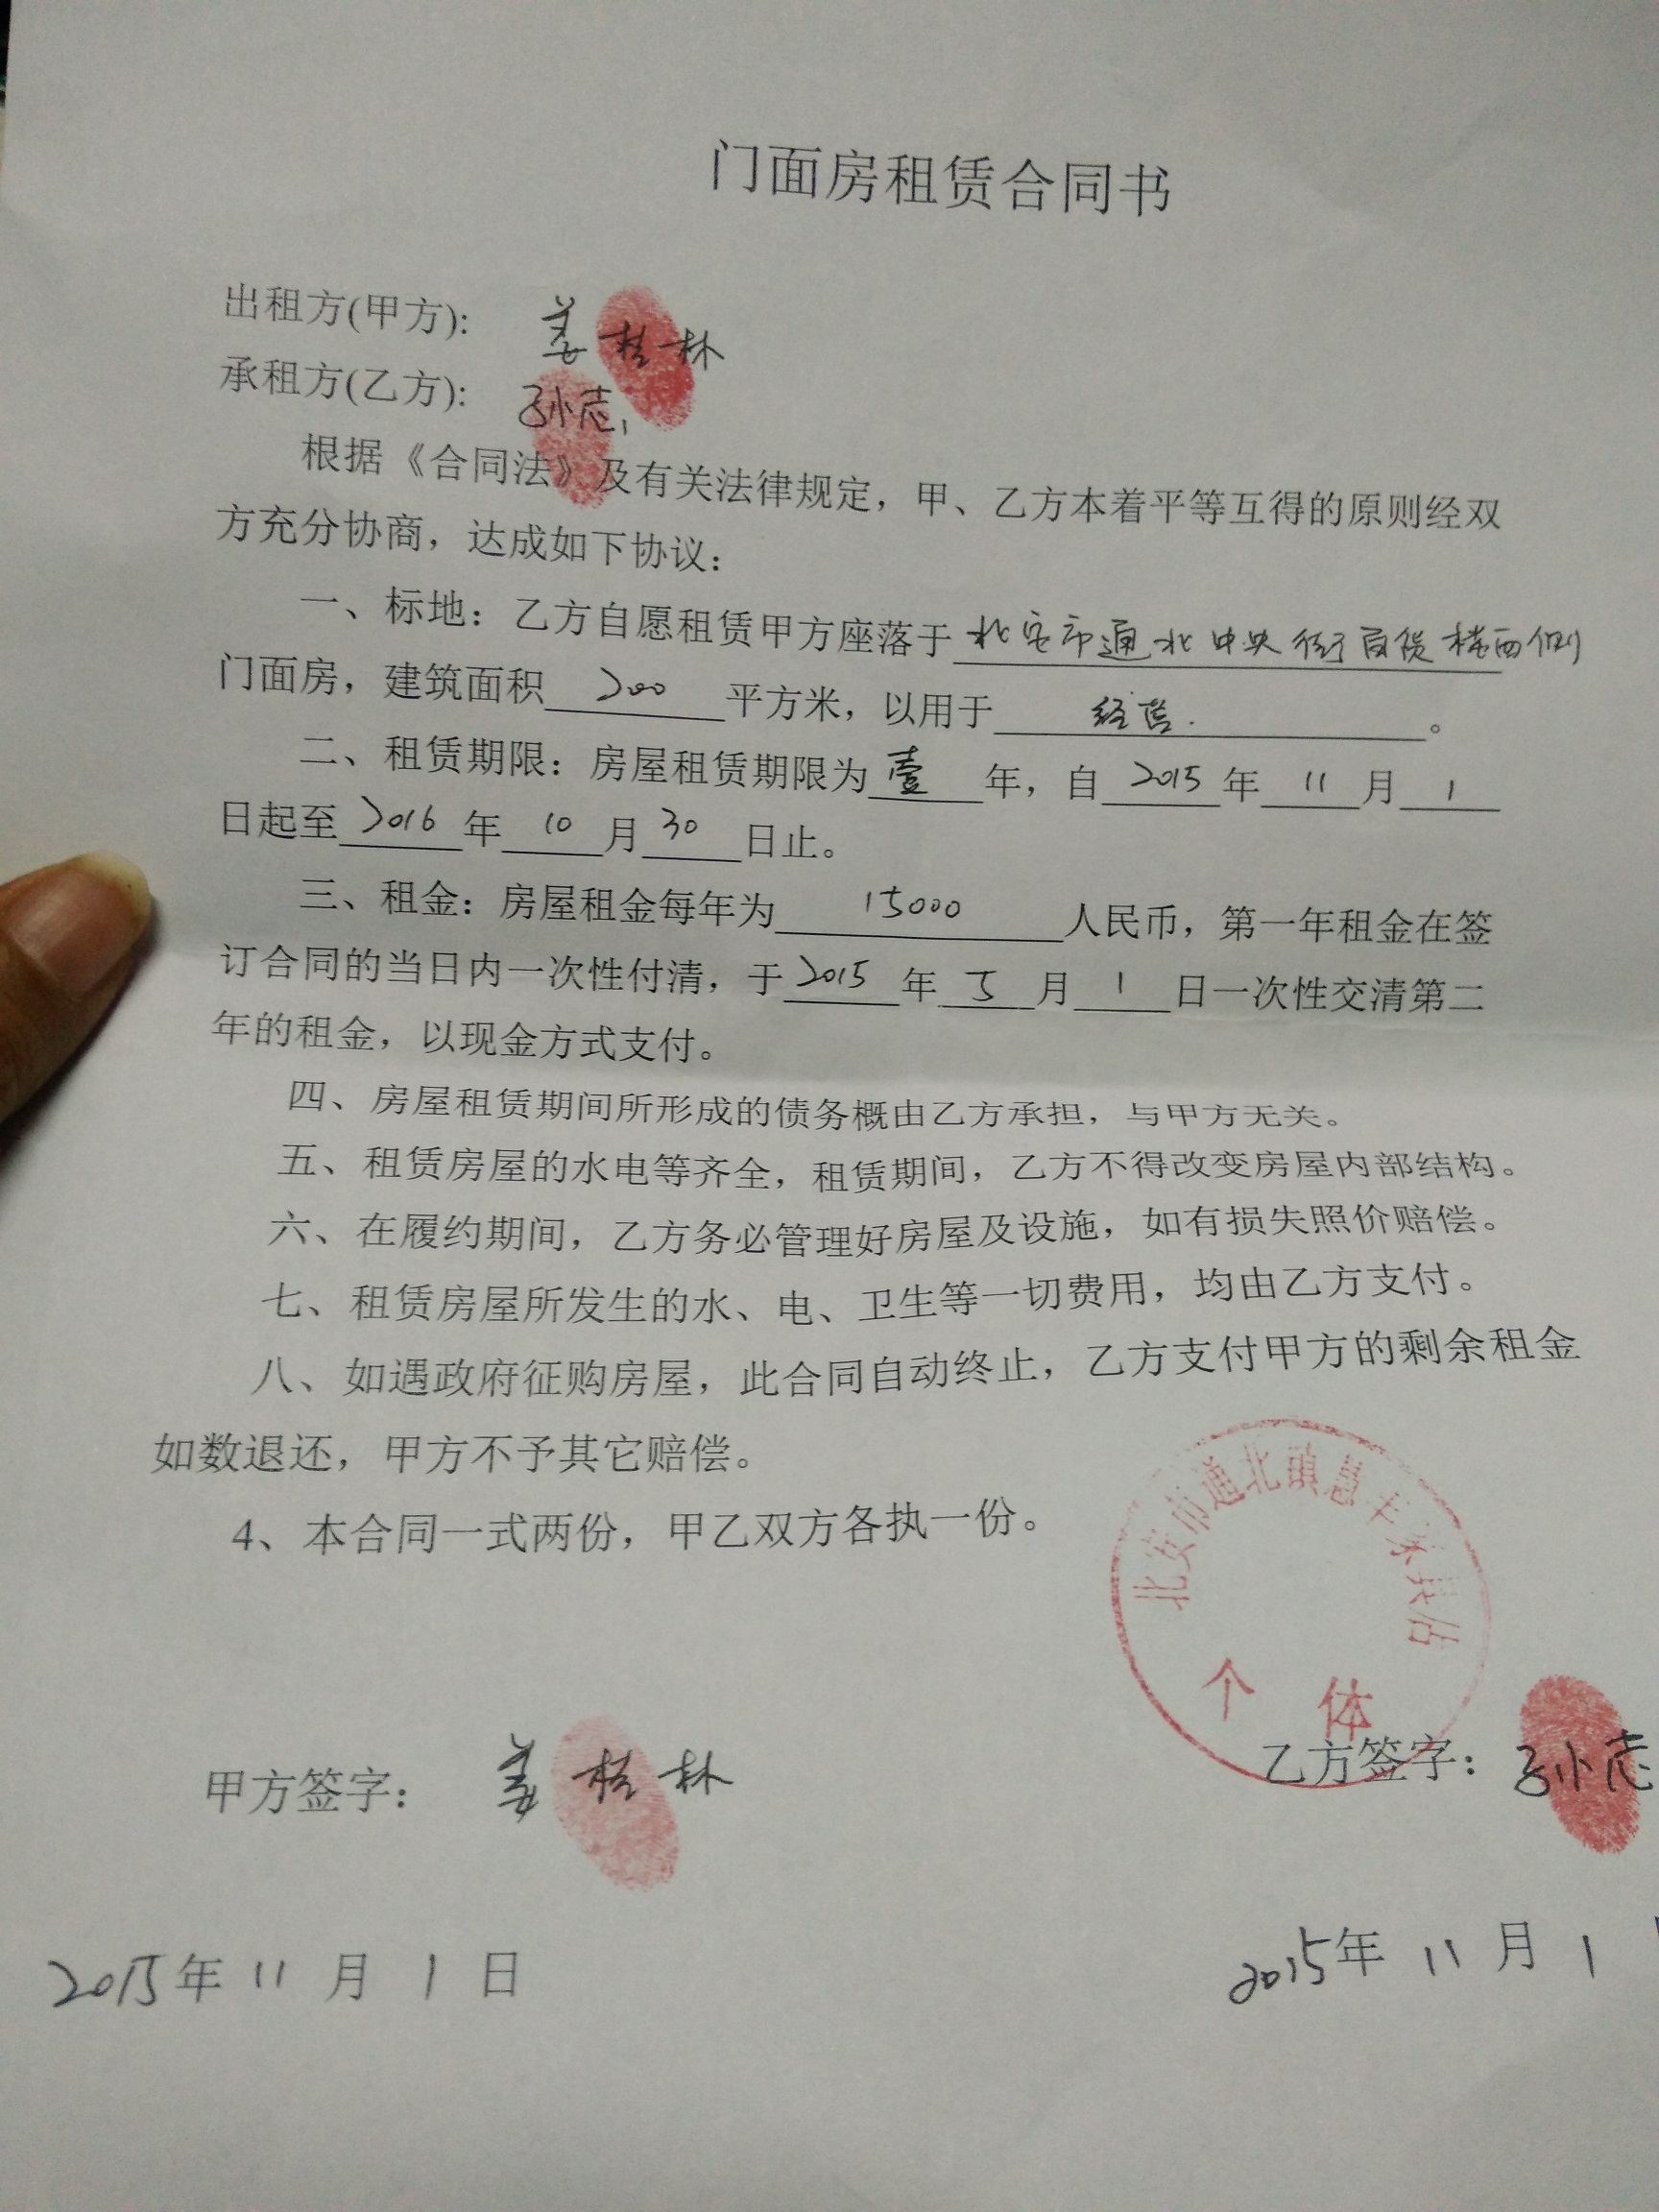 门面房租赁合同书
出租方(甲方): 姜桂林
承租方(乙方): 孙志
根据《合同法》及有关法律规定，甲、乙方本着平等互得的原则经双
方充分协商，达成如下协议：
一、标地：乙方自愿租赁甲方座落于北安市通北中央街百货楼西侧
门面房，建筑面积 200 平方米，以用于 经营.。
二、租赁期限：房屋租赁期限为 壹 年，自 2015 年 11 月 1
日起至 2016 年 10 月 30 日止。
三、租金：房屋租金每年为 15000 人民币，第一年租金在签
订合同的当日内一次性付清，于 2015 年 5 月 1 日一次性交清第二
年的租金，以现金方式支付。
四、房屋租赁期间所形成的债务概由乙方承担，与甲方无关。
五、租赁房屋的水电等齐全，租赁期间，乙方不得改变房屋内部结构。
六、在履约期间，乙方务必管理好房屋及设施，如有损失照价赔偿。
七、租赁房屋所发生的水、电、卫生等一切费用，均由乙方支付。
八、如遇政府征购房屋，此合同自动终止，乙方支付甲方的剩余租金
如数退还，甲方不予其它赔偿。
4、本合同一式两份，甲乙双方各执一份。
北安市通北镇慧丰家具店
个体
甲方签字： 姜桂林
乙方签字：孙志
2015年 11 月 1 日
2015年 11 月 1